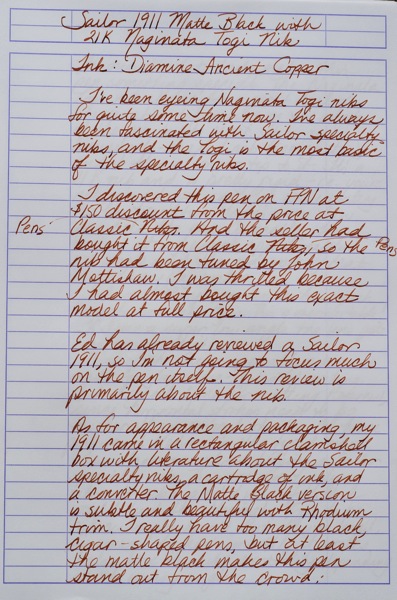 Sailor 1911 Matte Black with
21K Naginata Togi Nib
Ink: Diamine Ancient Copper
I've been eyeing Naginata Togi nibs
for quite some time now. I've always
been fascinated with Sailor specialty
nibs, and the Togi is the most basic
of the specialty nibs.
I discovered this pen on FPN at
$150 discount from the price at
Pens Classic Nibs. And the seller had
bought it from Classic Nibs, so the Pens
nib had been tuned by John
Mottishaw. I was thrilled because
I had almost bought this exact
model at full price.
Ed has already reviewed a Sailor
1911, so I'm not going to focus much
on the pen itself. This review is
primarily about the nib.
As for appearance and packaging, my
1911 came in a rectangular clamshell
box with literature about the Sailor
specialty nibs, a cartridge of ink, and
a converter. The Matte Black version
is subtle and beautiful with Rhodium
trim. I really have too many black,
cigar-shaped pens, but at least
the matte black makes this pen
stand out from the crowd.